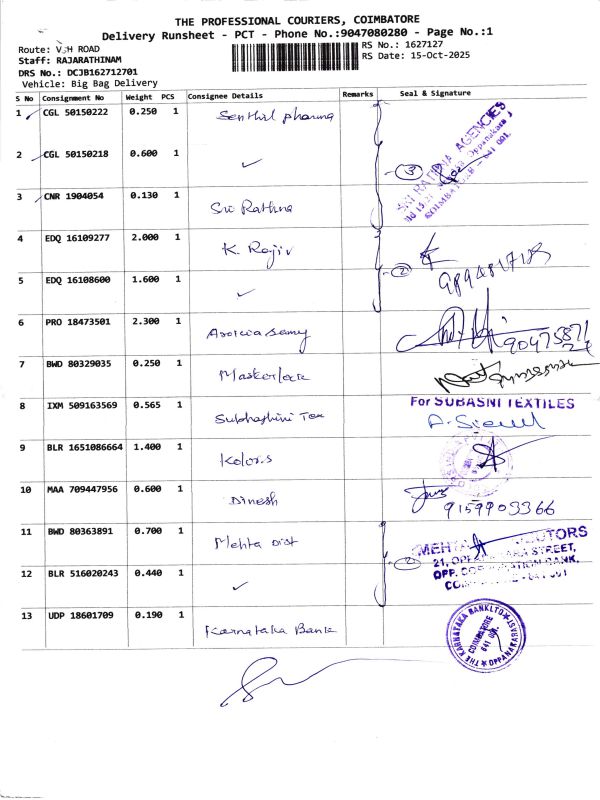 THE PROFESSIONAL COURIERS, COIMBATORE
Delivery Runsheet - PCT - Phone No.:9047080280 - Page No.:1
Route: V.H ROAD
RS No.: 1627127
Staff: RAJARATHINAM
RS Date: 15-Oct-2025
DRS No.: DCJB162712701
Vehicle: Big Bag Delivery
S No Consignment No Weight PCS Consignee Details Remarks Seal & Signature
1 CGL 50150222 0.250 1 Senthil pharma
2 CGL 50150218 0.600 1 ✓ (3)
SRI RATHNA AGENCIES
COIMBATORE - 641 001.
3 CNR 1904054 0.130 1 Sri Rathna
4 EDQ 16109277 2.000 1 K. Rajiv
5 EDQ 16108600 1.600 1 ✓ (2)
6 PRO 18473501 2.300 1
7 BWD 80329035 0.250 1
8 IXM 509163569 0.565 1 Subhashini Tex
For SUBASNI TEXTILES
9 BLR 1651086664 1.400 1 Kolors
10 MAA 709447956 0.600 1 Dinesh
9159903366
11 BWD 80363891 0.700 1 Mehta Dist
MEHTA
21, OPPANAKARA STREET,
OPP. CORPORATION BANK,
12 BLR 516020243 0.440 1 ✓ (2)
13 UDP 18601709 0.190 1 Karnataka Bank
THE KARNATAKA BANK LTD
COIMBATORE
641 001.